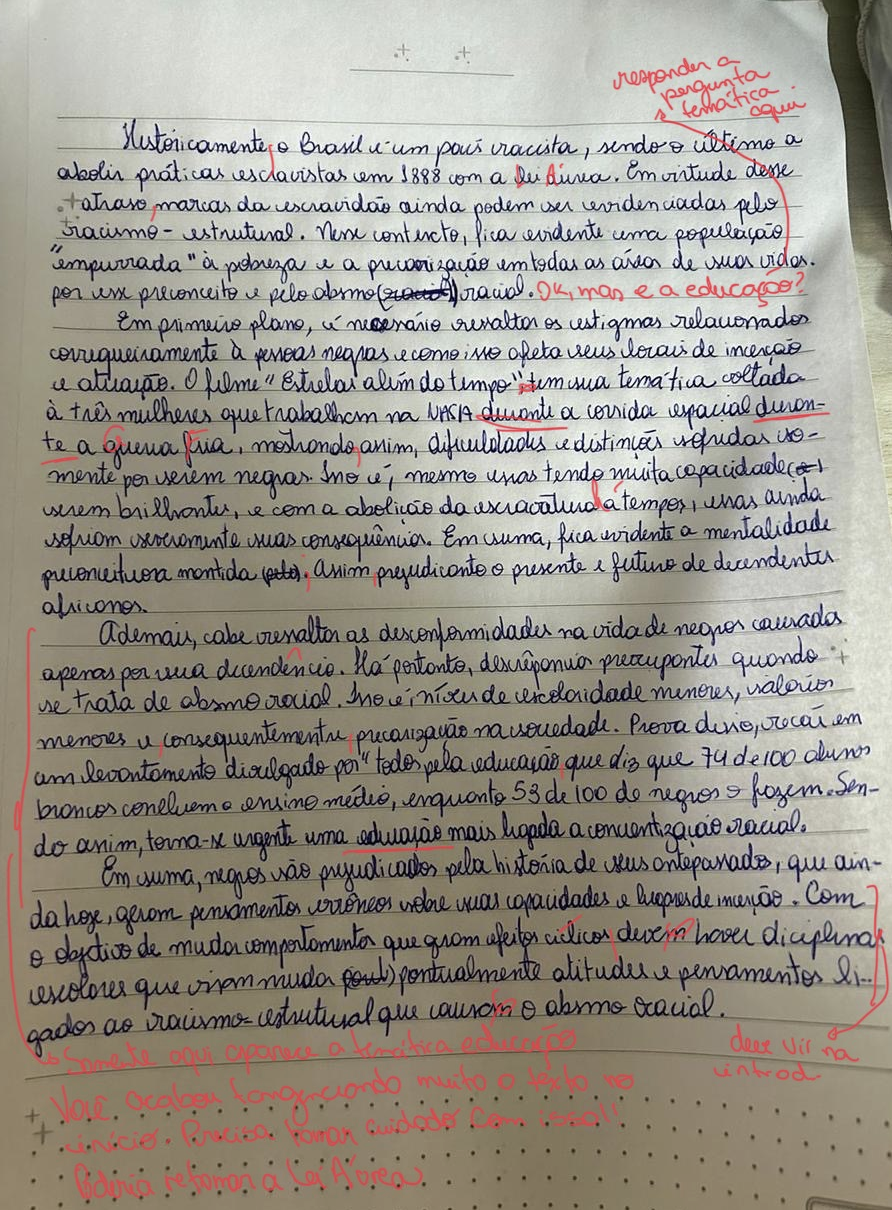 responder a
pergunta
temática
aqui
Históricamente, o Brasil é um país racista, sendo o último a
abolir práticas esclavistas em 1888 com a lei Áurea. Em virtude desse
atraso, marcas da escravidão ainda podem ser evidenciadas pelo
racismo-estrutural. Nesse contexto, fica evidente uma população
"empurrada" à pobreza e a precarização em todas as áreas de suas vidas.
por esse preconceito e pelo absmo racial. OK, mas e a educação?
Em primeiro plano, é necessário ressaltar os estigmas relacionados
corriqueiramente à pessoas negras e como isso afeta seus locais de incerção
e atuação. O filme "Estrelas além do tempo", tem sua temática voltada
à três mulheres que trabalham na NASA durante a corrida espacial duran-
te a Guerra Fria, mostrando, assim, dificuldades e distinções sofridas so-
mente por serem negras. Isso é, mesmo essas tendo muita capacidade e
serem brilhantes, e com a abolição da escravatura há tempos, essas ainda
sofriam severamente suas consequências. Em suma, fica evidente a mentalidade
preconceituosa mantida. Assim, prejudicanto o presente e futuro de decendentes
africanos.
Ademais, cabe ressaltar as desconformidades na vida de negros causadas
apenas por sua decendência. Há portanto, descrêpancias preocupantes quando
se trata de absmo racial. Isso é, níveis de escolaridade menores, salários
menores e, consequentemente, precarização na sociedade. Prova disso, recai em
um levantamento divulgado por "todos pela educação, que diz que 74 de 100 alunos
brancos concluem o ensino médio, enquanto 53 de 100 de negros o fazem. Sen-
do assim, torna-se urgente uma educação mais ligada a concientização racial.
Em suma, negros são prejudicados pela história de seus antepassados, que ain-
da hoje, geram pensamentos errôneos sobre suas capacidades e lugares de incerção. Com
o objetivo de mudar comportamentos que geram efeitos cíclicos, devem haver diciplinas
escolares que visam muda pontualmente atitudes e pensamentos li-
gados ao racismo-estrutural que causam o absmo racial.
Somente aqui aparece a temática educação
deve vir na
introd.
Você acabou tangenciando muito o texto no
início. Precisa tomar cuidado com isso!!
Poderia retomar a Lei Áurea